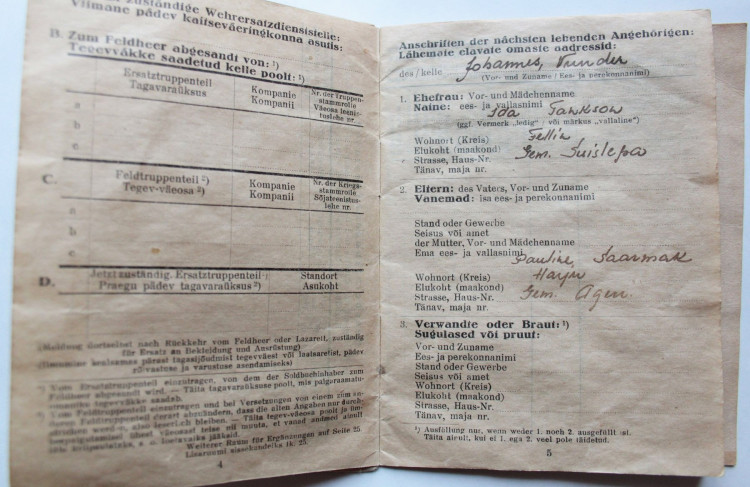 zuständige Wehrersatzdienststelle:
Viimane pädev kaitseväeringkonna asutis:
B. Zum Feldheer abgesandt von: ¹)
Tegevväkke saadetud kelle poolt: ¹)
Ersatztruppenteil
Tagavaraüksus
Kompanie
Kompanii
Nr. der Truppen-
stammrolle
Väeosa
a
b
c
C.
Feldtruppenteil ²)
Tegev-väeosa ²)
Kompanie
Kompanii
Nr. der Kriegs-
stammrolle
a
b
c
D.
Jetzt zuständig. Ersatztruppenteil ²)
Praegu pädev tagavaraüksus ²)
Standort
Asukoht
(Meldung dortselbst nach Rückkehr vom Feldheer oder Lazarett, zuständig
für Ersatz an Bekleidung und Ausrüstung)
rõivastuse ja varustuse asendamiseks)
Vom Ersatztruppenteil einzutragen, von dem der Soldbuchinhaber zum
Feldheer abgesandt wird. — Täita tagavaraüksuse poolt, mis
tegevväkke saadab.
Vom Feldtruppenteil einzutragen und bei Versetzungen von einem zum
Feldtruppenteil derart abzuändern, dass die alten Angaben nur durch-
leserlich bleiben. — Täita tegev-väeosa poolt ja
Weiterer Raum für Ergänzungen auf Seite 25
Lisaruumi sissekandeiks lk. 25.
4
Anschriften der nächsten lebenden Angehörigen:
Lähemate elavate omaste aadressid:
des / kelle Johannes,
(Vor- und Zuname / Ees- ja perekonnanimi)
1. Ehefrau: Vor- und Mädchenname
Naine: ees- ja vallasnimi
Ida
(ggf. Vermerk „ledig" / või märkus „vallaline")
Wohnort (Kreis) Fellin
Elukoht (maakond)
Strasse, Haus-Nr. Gem. Suislepa
Tänav, maja nr.
2. Eltern: des Vaters, Vor- und Zuname
Vanemad: Isa ees- ja perekonnanimi
Stand oder Gewerbe
Seisus või amet
der Mutter, Vor- und Mädchenname
Ema ees- ja vallasnimi Pauline, Saarmak
Wohnort (Kreis)
Elukoht (maakond)
Strasse, Haus-Nr. Gem. Ageri
Tänav, maja nr.
3. Verwandte oder Braut: ¹)
Sugulased või pruut:
Vor- und Zuname
Ees- ja perekonnanimi
Stand oder Gewerbe
Seisus või amet
Wohnort (Kreis)
Elukoht (maakond)
Strasse, Haus-Nr.
Tänav, maja nr.
¹) Ausfüllung nur, wenn weder 1. noch 2. ausgefüllt ist.
Täita ainult, kui ei 1. ega 2. veel pole täidetud.
5